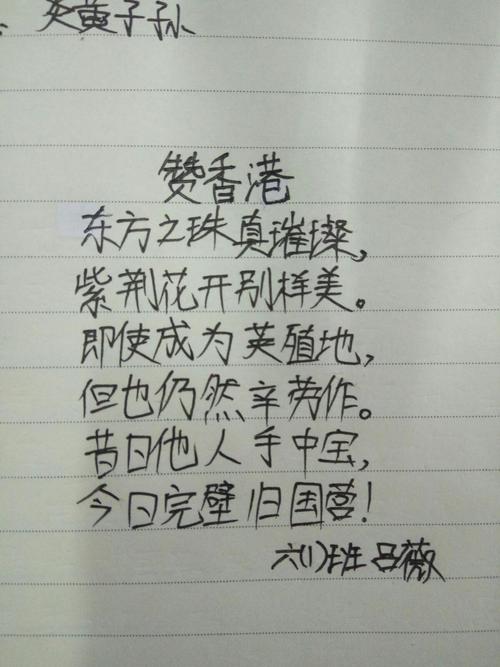 炎黄子孙
赞香港
东方之珠真璀璨,
紫荆花开别样美。
即使成为英殖地,
但也仍然辛劳作。
昔日他人手中宝,
今日完璧归国营!
六(1)班吕薇